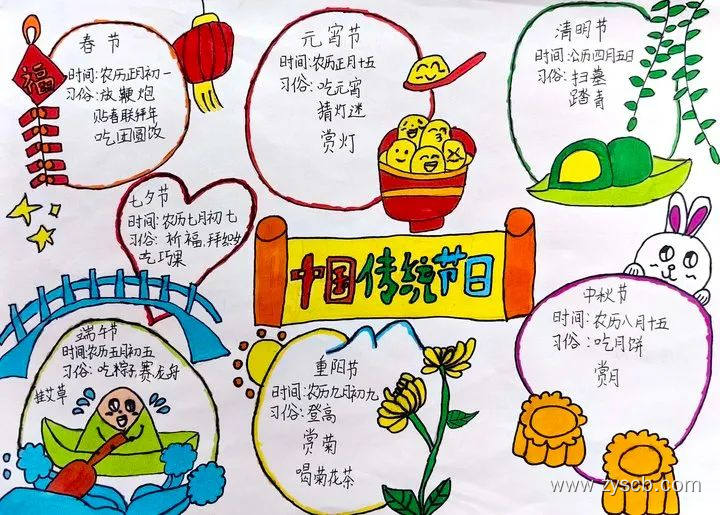 春节
时间:农历正月初一
习俗:放鞭炮
贴春联拜年
吃团圆饭
福
元宵节
时间:农历正月十五
习俗:吃元宵
猜灯迷
赏灯
清明节
时间:公历四月五日
习俗:扫墓
踏青
七夕节
时间:农历七月初七
习俗:祈福,拜织女
吃巧果
中国传统节日
中秋节
时间:农历八月十五
习俗:吃月饼
赏月
端午节
时间:农历五月初五
习俗:吃粽子,赛龙舟
挂艾草
重阳节
时间:农历九月初九
习俗:登高
赏菊
喝菊花茶
www.zyscb.com